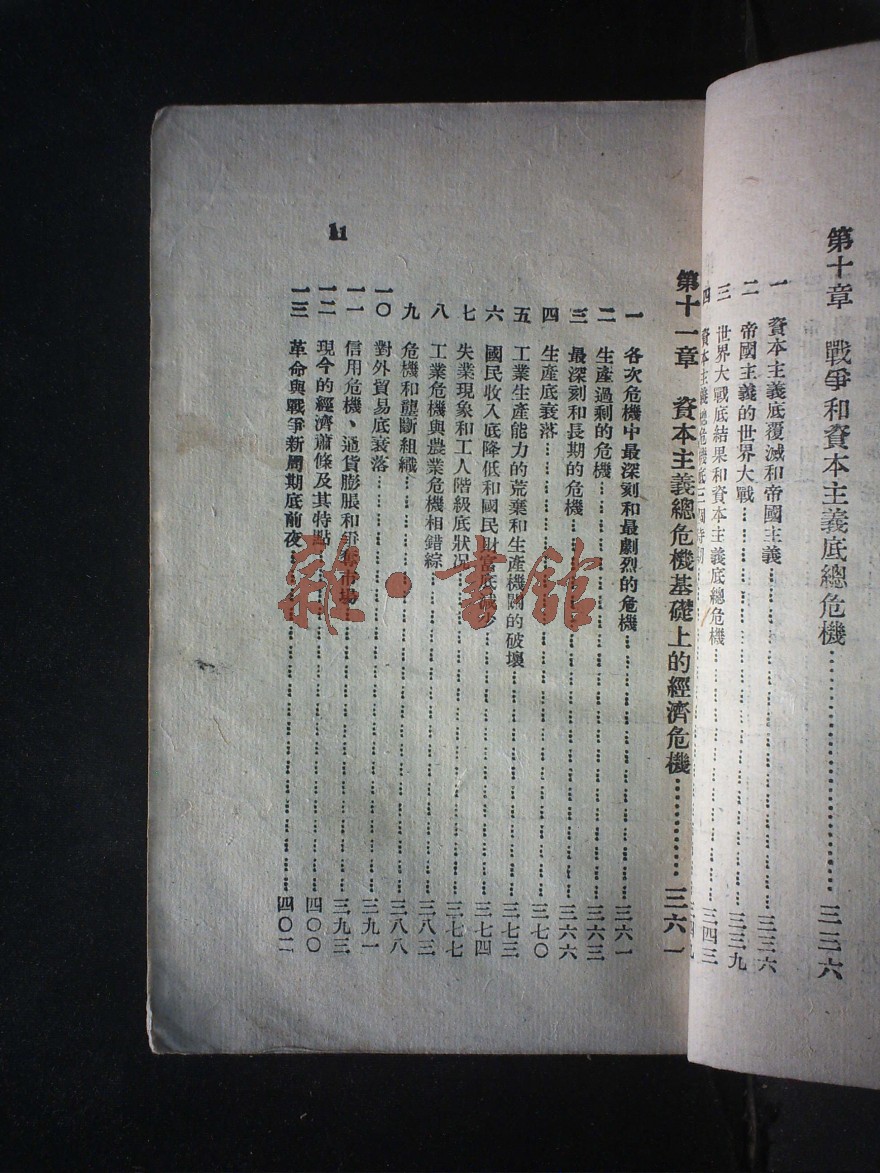 第十章 戰爭和資本主義底總危機…………三三六
一 資本主義底覆滅和帝國主義…………三三六
二 帝國主義的世界大戰…………三三九
三 世界大戰底結果和資本主義底總危機…………三四三
四 資本主義總危機底三個時期…………三四九
第十一章 資本主義總危機基礎上的經濟危機…………三六一
一 各次危機中最深刻和最劇烈的危機…………三六一
二 生產過剩的危機…………三六三
三 最深刻和長期的危機…………三六六
四 生產底衰落…………三七〇
五 工業生產能力的荒棄和生產機關的破壞…………三七三
六 國民收入底降低和國民財富底減少…………三七四
七 失業現象和工人階級底狀況…………三七七
八 工業危機與農業危機相錯綜…………三八三
九 危機和壟斷組織…………三八八
一〇 對外貿易底衰落…………三九一
一一 信用危機、通貨膨脹和爭奪市場…………三九三
一二 現今的經濟蕭條及其特點…………四〇〇
一三 革命與戰爭新周期底前夜…………四〇二
11
雜·書館